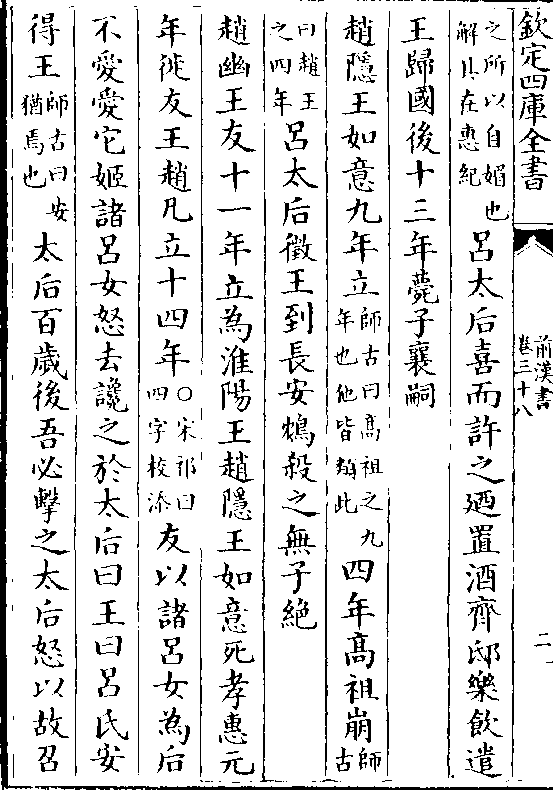 欽定四庫全書
前漢書
卷三十八
二
之所以自媚也
解具在惠紀
呂太后喜而許之廼置酒齊邸樂飲遣
王歸國後十三年薨子襄嗣
趙隱王如意九年立
師古曰高祖之九
年也他皆類此
四年髙祖崩
師古
曰趙王
之四年
呂太后徵王到長安鴆殺之無子絶
趙幽王友十一年立為淮陽王趙隱王如意死孝惠元
年徙友王趙凡立十四年
○宋祁曰
四字校添
友以諸呂女為后
不愛愛它姬諸呂女怒去讒之於太后曰王曰呂氏安
得王
師古曰安
猶焉也
太后百歲後吾必擊之太后怒以故召